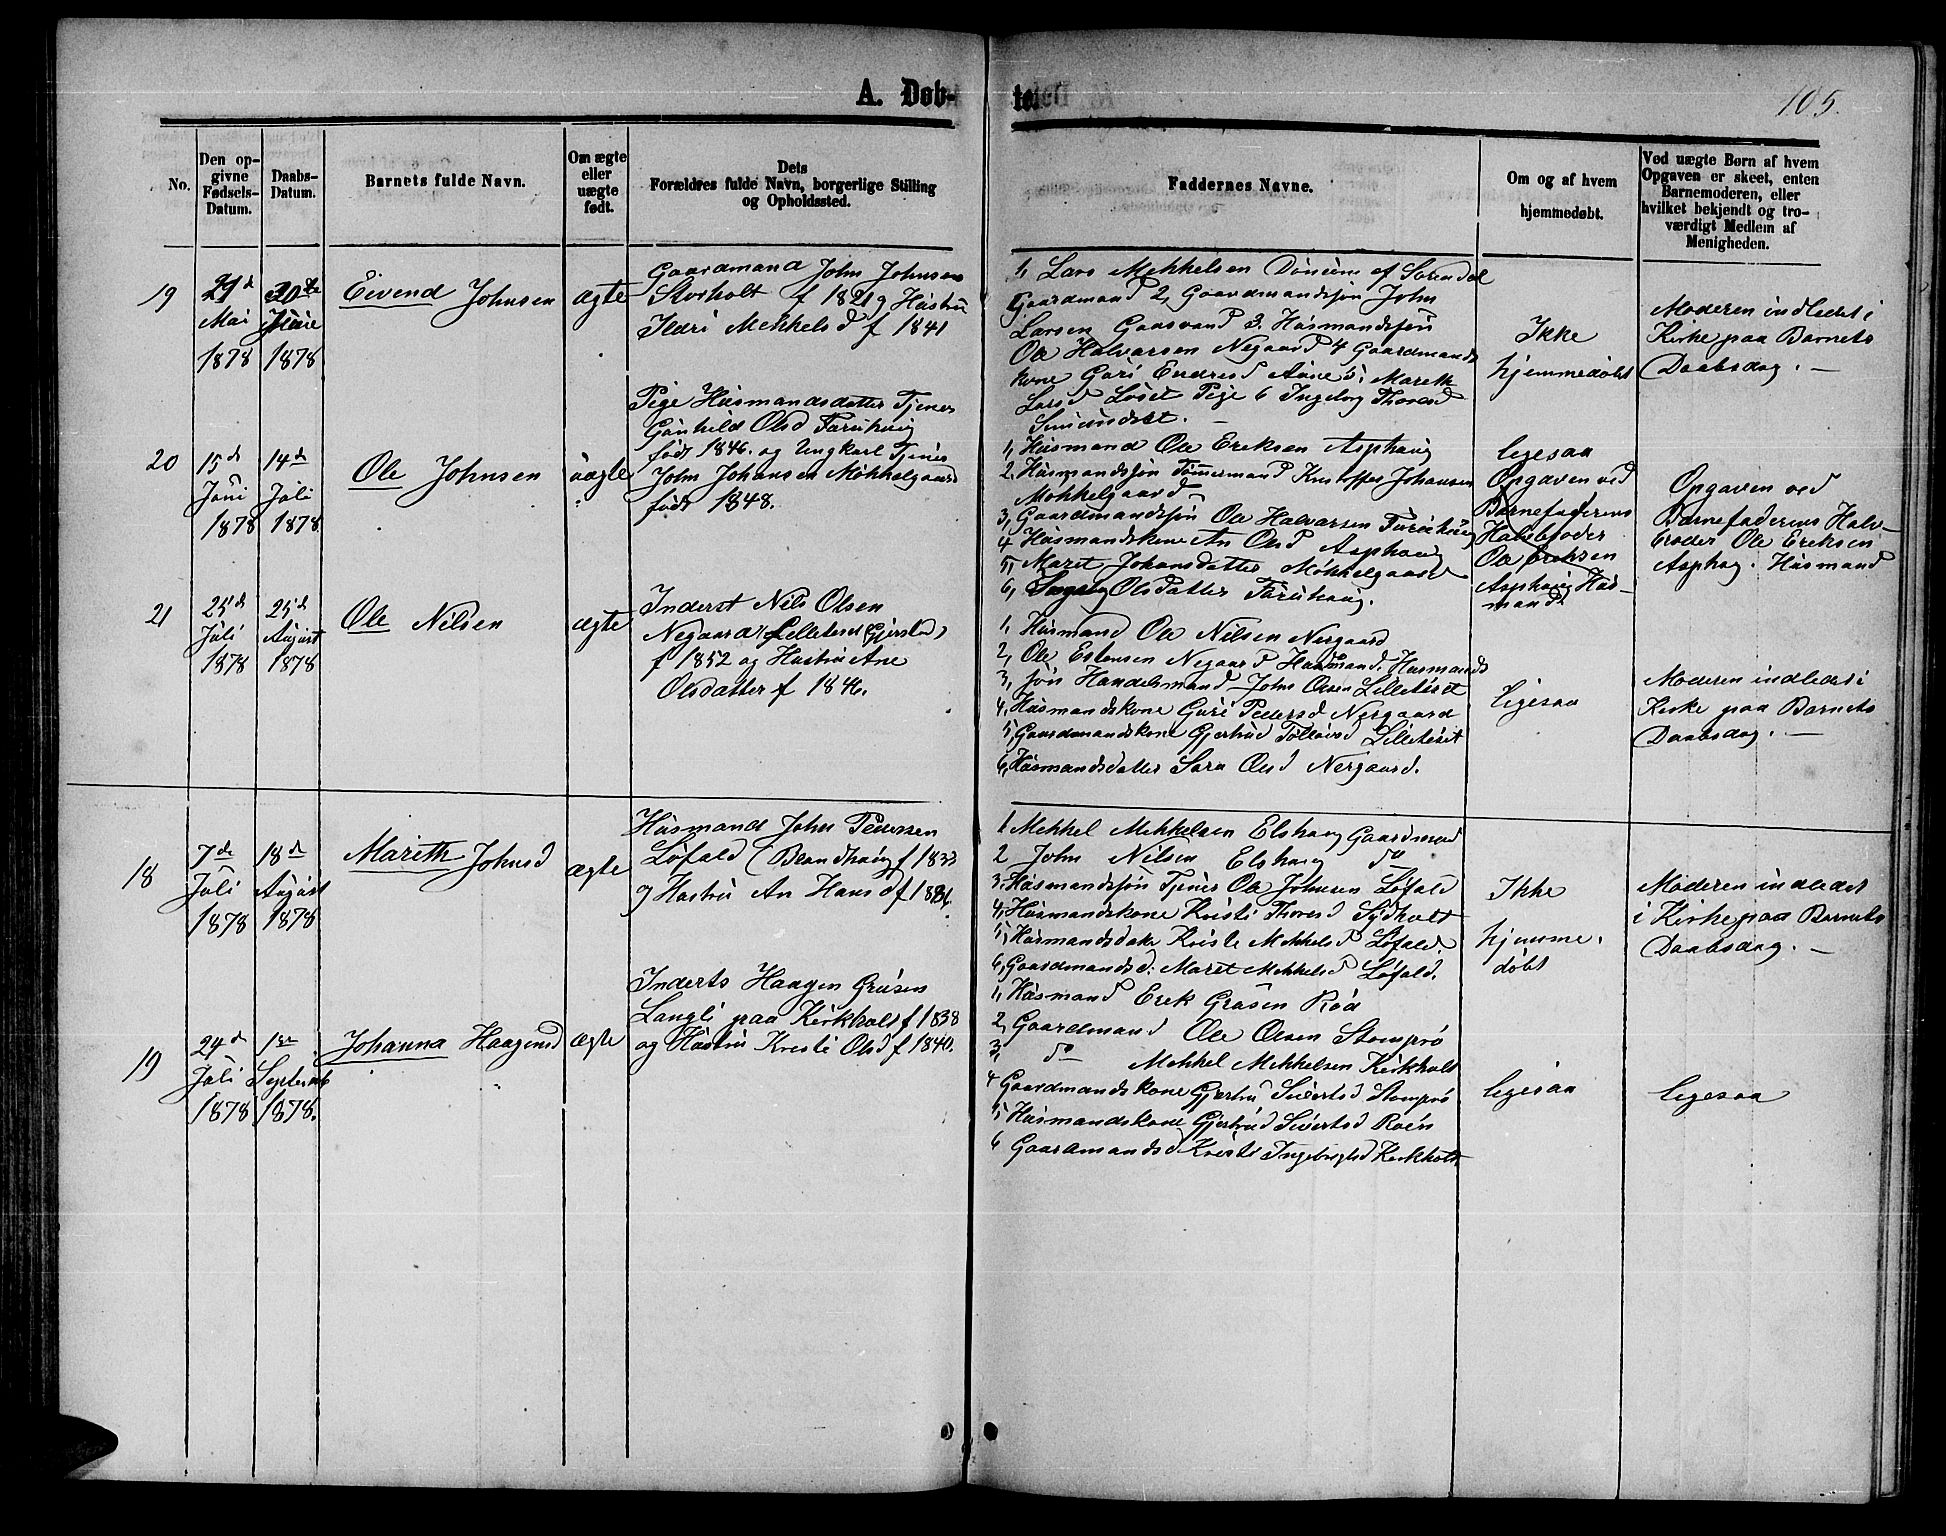 A. Døb-
te.
105.
No.
Den op-
givne
Fødsels-
Datum.
Daabs-
Datum.
Barnets fulde Navn.
Om ægte
eller
uægte
født.
Dets
Forældres fulde Navn, borgerlige Stilling
og Opholdssted.
Faddernes Navne.
Om og af hvem
hjemmedøbt.
Ved uægte Børn af hvem
Opgaven er skeet, enten
Barnemoderen, eller
hvilket bekjendt og tro-
værdigt Medlem af
Menigheden.
19
Mai
1878
1878
Eivend Johnsen
ægte
Gaardmand John Johnsen
Storholt f 1821 og Hustru
Ildri Mekkelsd f 1841
1, Lars Mekkelsen
Gaardmand 2, Gaardmandssøn John
Larsen Gaasvand 3. Husmandssøn
Ole Halvarsen Negaard 4 Gaardmands
kone Guri Endresd Aune 5, Mareth
Larsd Løset Pige 6 Ingebor Thoresd
Ikke
hjemmedøbt
Moderen indledet i
Kirke paa Barnets
Daabsdag. —
20
15de
Juni
1878
14de
Juli
1878
Ole Johnsen
uægte
Pige Husmandsdatter Tjener
Gunhild Olsd Faruhaug
født 1846. og Ungkarl Tjener
John Johansen Mokkelgaard
født 1848.
1, Husmand Ole Eriksen Asphaug
2. Husmandssøn Tømmermand Kristoffer Johansen
Mokkelgaard
3, Gaardmandssøn Ole Halvarsen Faruhaug
4 Husmandskone An Olsd Asphaug
5, Maret Johansdatter Mokkelgaard
6, Olsdatter Faruhaug.
ligesaa
Opgaven ved
Barnefaderens
Halvbroder
Ole Eriksen
Asphaug Hus-
mand
Opgaven ved
Barnefaderens Halv-
broder Ole Eriksen
Asphaug. Husmand
21
25de
Juli
1878
25de
August
1878
Ole Nilsen
ægte
Inderst Nils Olsen
Negaard Lilleteset
f 1852 og Hustru Ane
Olsdatter f 1846.
1. Husmand Ole Nilsen Nergaard
2, Ole Estensen Negaard Husmand. Husmands
3, søn Handelsmand John Olsen Lilleteset
4. Husmandskone Guri Pedersd Nergaard
5, Gaardmandskone Gjertrud Lilleteset
6, Husmandsdatter Sara Olsd Nergaard.
ligesaa
Moderen indledet i
Kirke paa Barnets
Daabsdag. —
18
7de
Juli
1878
18de
August
1878
Mareth Johnsd
ægte
Husmand John Pedersen
Løfald (Brandhaug f 1833
og Hustru An Hansd f 1836.
1 Mekkel Mekkelsen Elshaug Gaardmand
2 John Nilsen Elshaug do
3, Husmandssøn Tjener Ole Johnsen Løfald
4, Husmandskone Kristi Thoresd Sydhalt
5, Husmandsdatr Kristi Mekkelsd Løfald.
6, Gaardmandsd. Maret Mekkelsd Løfald.
Ikke
hjemme-
døbt
Moderen indledet
i Kirke paa Barnets
Daabsdag. —
19
24de
Juli
1878
1ste
Septemb
1878.
Johanna Haagensd
ægte
Inderts Haagen Grusen
Langli paa Kirkholt f 1838
og Hustru Kristi Olsd f 1840.
1, Husmand Erik Grusen Røa
2, Gaardmand Ole Olsen Stomprø
3, do Mekkel Mekkelsen Kirkholt
4 Gaardmandskone Gjertru Siversd Stomprø
5, Husmandskone Gjertrud Sivertsd Roen
6 Gaardmandsd Kristi Ingebrigtsd Kirkholt
ligesaa
ligesaa